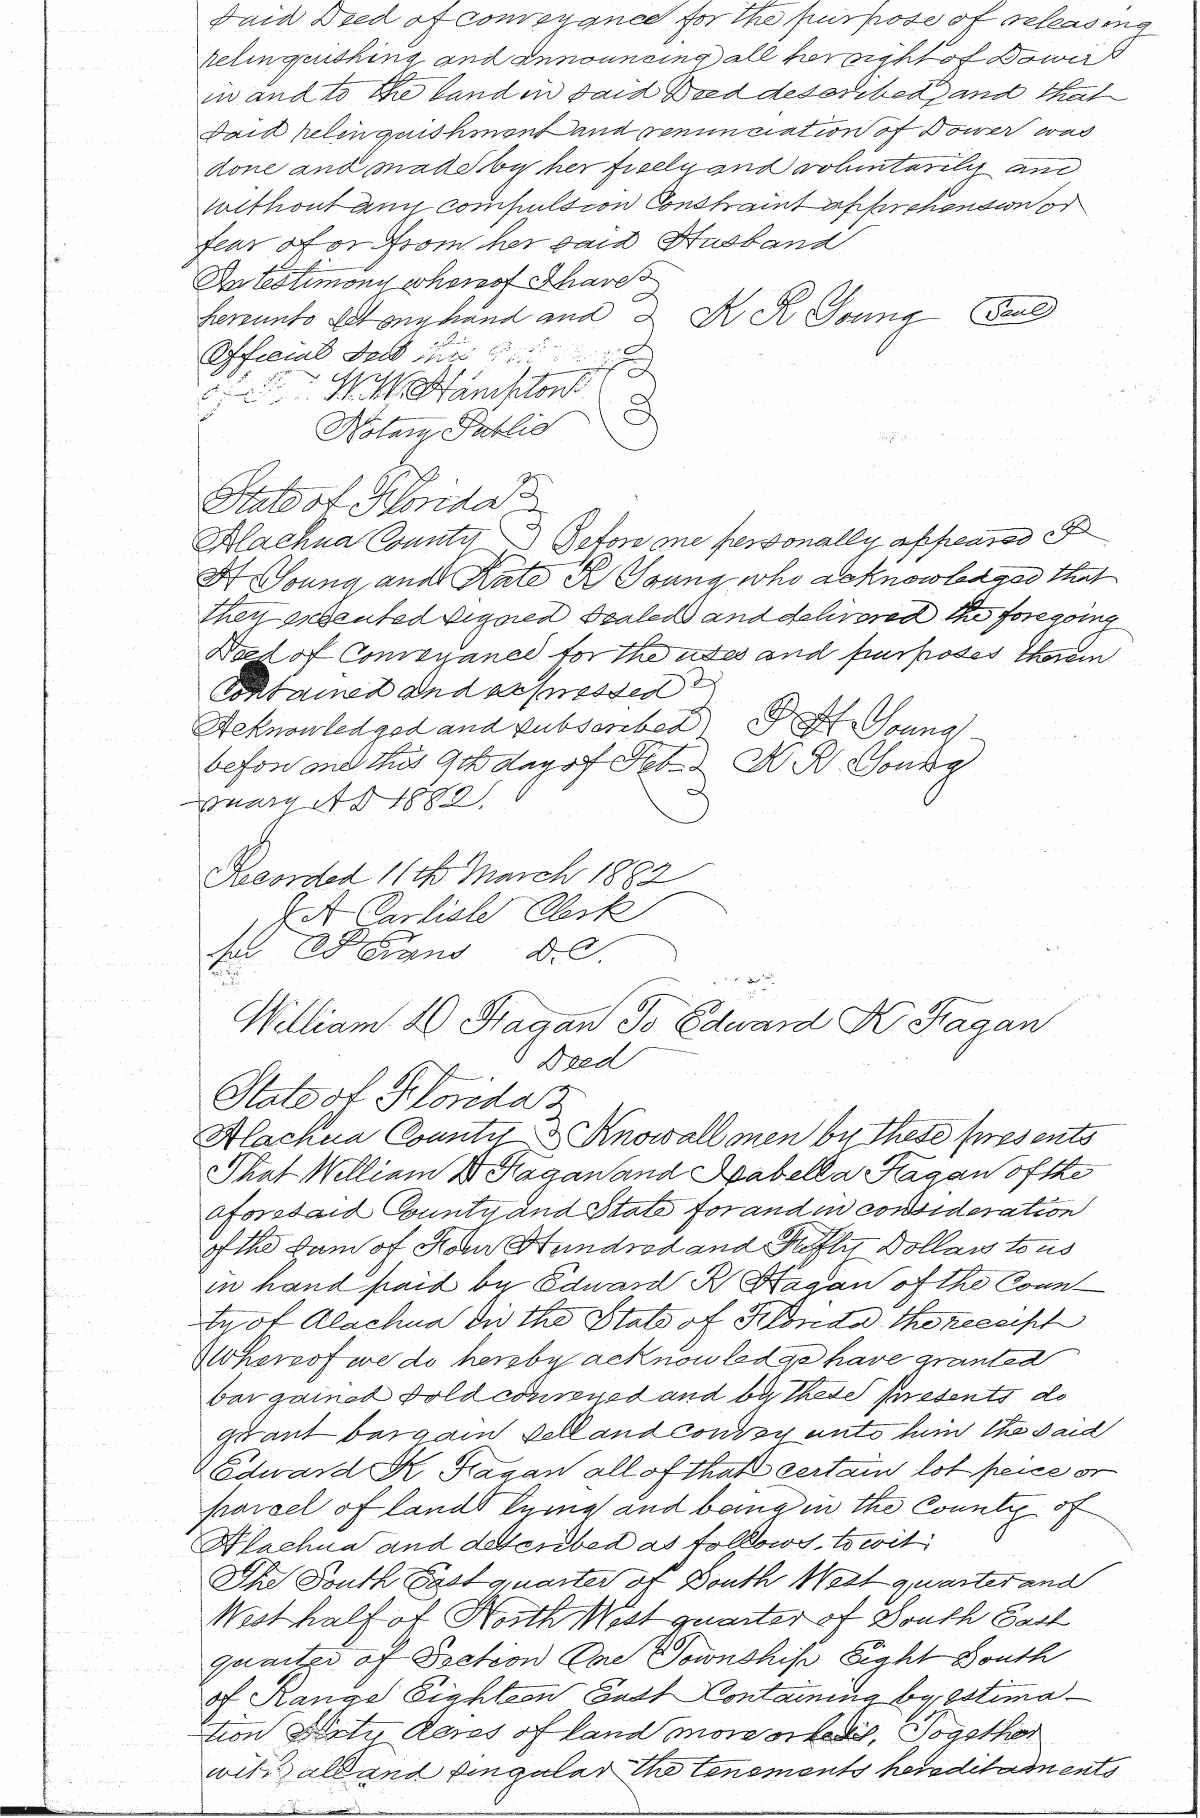 said Deed of conveyance for the purpose of releasing
relinquishing and announcing all her right of Dower
in and to the land in said Deed described, and that
said relinquishment and renunciation of Dower was
done and made by her freely and voluntarily and
without any compulsion Constraint apprehension or
fear of or from her said Husband
In testimony whereof I have
hereunto set my hand and K R Young Seal
Official Seal this
of W. W. Hampton
Notary Public
State of Florida
Alachua County Before me personally appeared P
H Young and Kate R Young who acknowledged that
they executed signed sealed and delivered the foregoing
Deed of Conveyance for the uses and purposes therein
Contained and expressed
Acknowledged and subscribed P H Young
before me this 9th day of Feb- K R Young
ruary A D 1882.
Recorded 11th March 1882
J A Carlisle Clerk
per Evans D.C.
William D Fagan To Edward K Fagan
Deed
State of Florida
Alachua County Know all men by these presents
That William D Fagan and Isabella Fagan of the
aforesaid County and State for and in consideration
of the sum of Four Hundred and Fifty Dollars to us
in hand paid by Edward K Fagan of the Coun-
ty of Alachua in the State of Florida the receipt
Whereof we do hereby acknowledge have granted
bargained sold conveyed and by these presents do
grant bargain sell and convey unto him the said
Edward K Fagan all of that certain lot peice or
parcel of land lying and being in the County of
Alachua and described as follows. to wit:
The South East quarter of South West quarter and
West half of North West quarter of South East
quarter of Section One Township Eight South
of Range Eighteen East Containing by estima-
tion Sixty Acres of land more or less, Together
with all and singular the tenements hereditaments